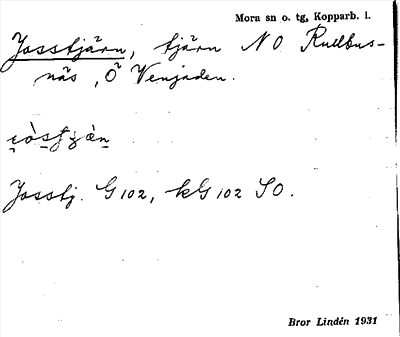 Mora sn o. tg, Kopparb. l.
Josstjärn, tjärn NO Rullbus-
näs, Ö Venjaden.
Josstj. G 102, kG 102 SO.
Bror Lindén 1931